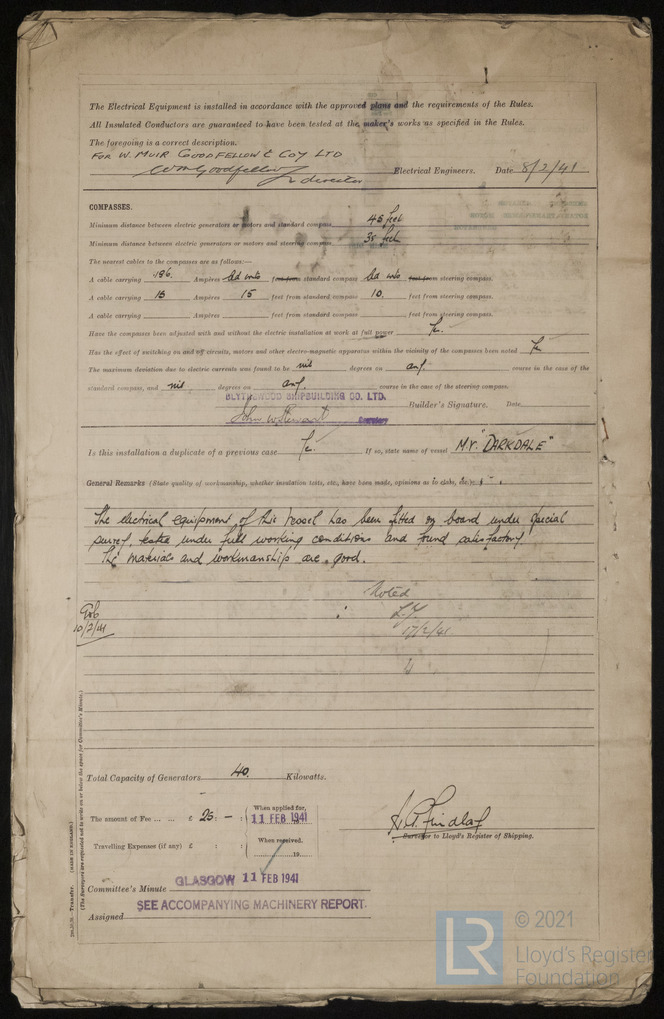 The Electrical Equipment is installed in accordance with the approved plans and the requirements of the Rules.
All Insulated Conductors are guaranteed to have been tested at the maker's works as specified in the Rules.
The foregoing is a correct description.
FOR W. MUIR GOODFELLOW & COY LTD
WM Goodfellow director Electrical Engineers. Date 8/2/41
COMPASSES.
Minimum distance between electric generators or motors and standard compass 45 feet
Minimum distance between electric generators or motors and steering compass 35 feet
The nearest cables to the compasses are as follows:—
A cable carrying .186. Ampères led into feet from standard compass led into feet from steering compass.
A cable carrying 15 Ampères 15 feet from standard compass 10. feet from steering compass.
A cable carrying Ampères feet from standard compass feet from steering compass.
Have the compasses been adjusted with and without the electric installation at work at full power
Has the effect of switching on and off circuits, motors and other electro-magnetic apparatus within the vicinity of the compasses been noted
The maximum deviation due to electric currents was found to be nil degrees on any course in the case of the
standard compass, and nil degrees on any course in the case of the steering compass.
BLYTHSWOOD SHIPBUILDING CO. LTD.
John W Stewart Secretary Builder's Signature. Date
Is this installation a duplicate of a previous case If so, state name of vessel M.V. "DARKDALE"
General Remarks (State quality of workmanship, whether insulation tests, etc., have been made, opinions as to data, etc.)
The electrical equipment of this vessel has been fitted on board under special
survey, tested under full working conditions and found satisfactory.
The materials and workmanship are good.
Noted
10/2/41
17/2/41
Total Capacity of Generators 40. Kilowatts.
The amount of Fee ... ... £ 25 : — : When applied for,
11 FEB 1941
Travelling Expenses (if any) £ : : When received,
19
H. A. Findlay
Surveyor to Lloyd's Register of Shipping.
Committee's Minute GLASGOW 11 FEB 1941
Assigned SEE ACCOMPANYING MACHINERY REPORT.
Transfer. (MADE IN ENGLAND.)
(The Surveyors are requested not to write on or below the space for Committee's Minute.)
LR © 2021
Lloyd's Register
Foundation